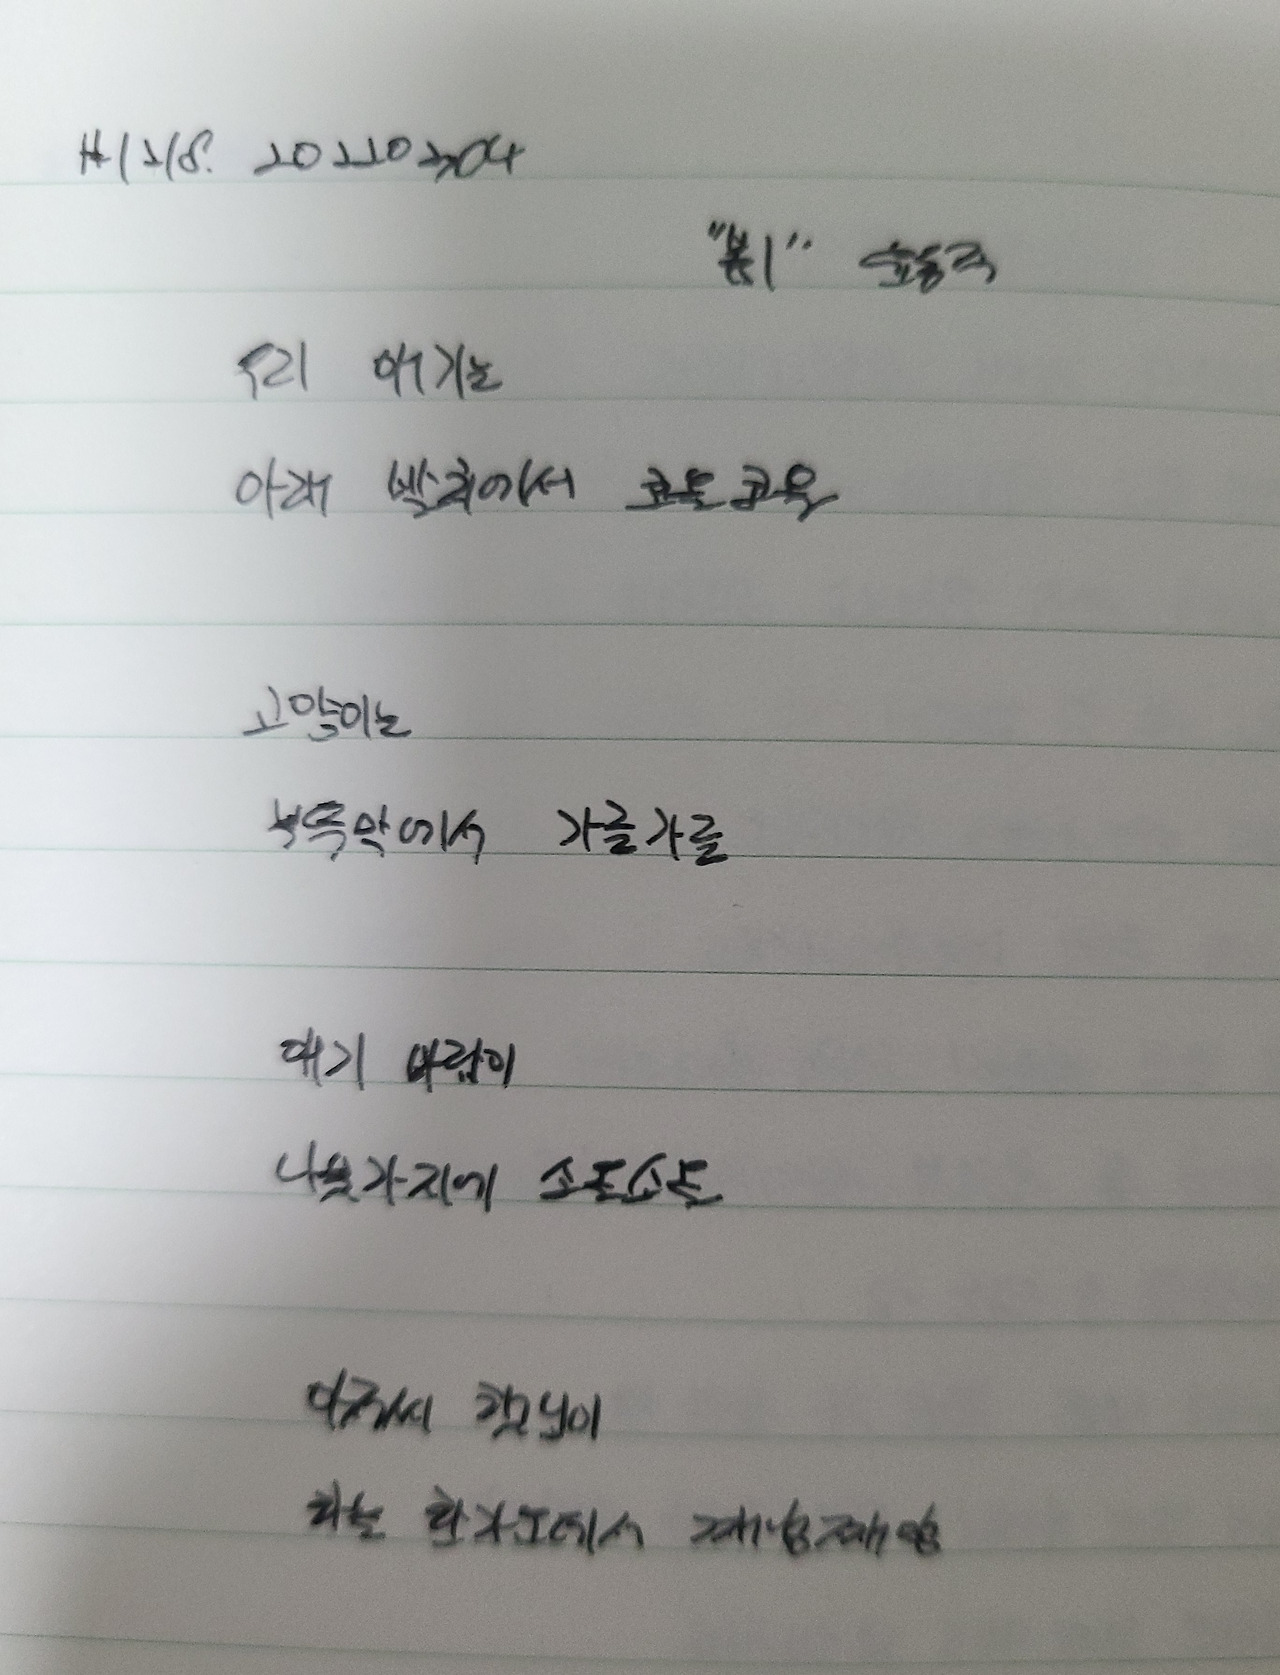 #1218. 20220304
"봄1" 윤동주
우리 애기는
아래 발치에서 코올코올
고양이는
부뚜막에서 가릉가릉
애기 바람이
나뭇가지에 소올소올
아저씨 햇님이
하늘 한가운데서 째앵째앵